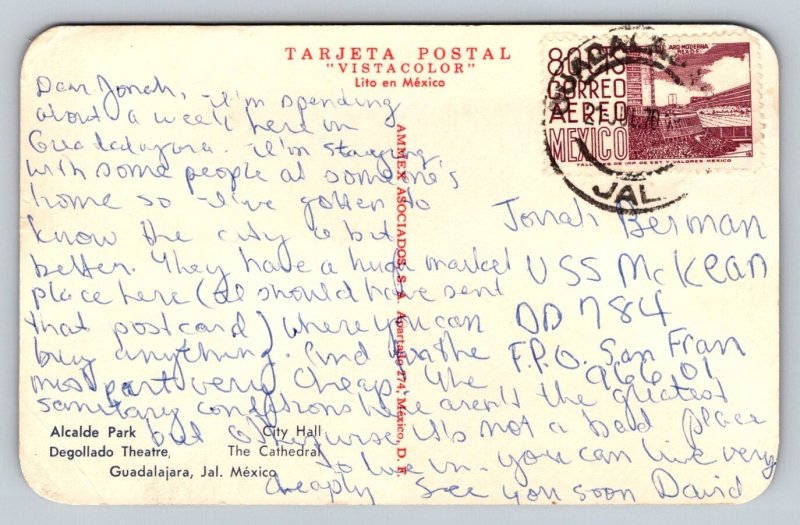 TARJETA POSTAL
"VISTACOLOR"
Lito en México
Dear Jonah, I'm spending
about a week here in
Guadalajara. I'm staying
with some people at someone's
home so I've gotten to
know the city a bit
better. They have a huge market
place here (I should have sent
that postcard) where you can
buy anything. And for the
most part very cheap. The
sanitary conditions here aren't the greatest
but otherwise it's not a bad place
to live in. You can live very
cheaply See you soon David
AMMEX ASOCIADOS, S. A. Apartado 274, México, D. F.
80
CORREO
AEREO
MEXICO
ARQ. MODERNA
MEX. D.F.
TALLERES DE IMP. DE EST. Y VALORES MEXICO
GUADALAJARA
JUL 70
JAL.
Jonah Berman
USS McKean
DD 784
F.P.O. San Fran
96601
Alcalde Park City Hall
Degollado Theatre, The Cathedral
Guadalajara, Jal. México